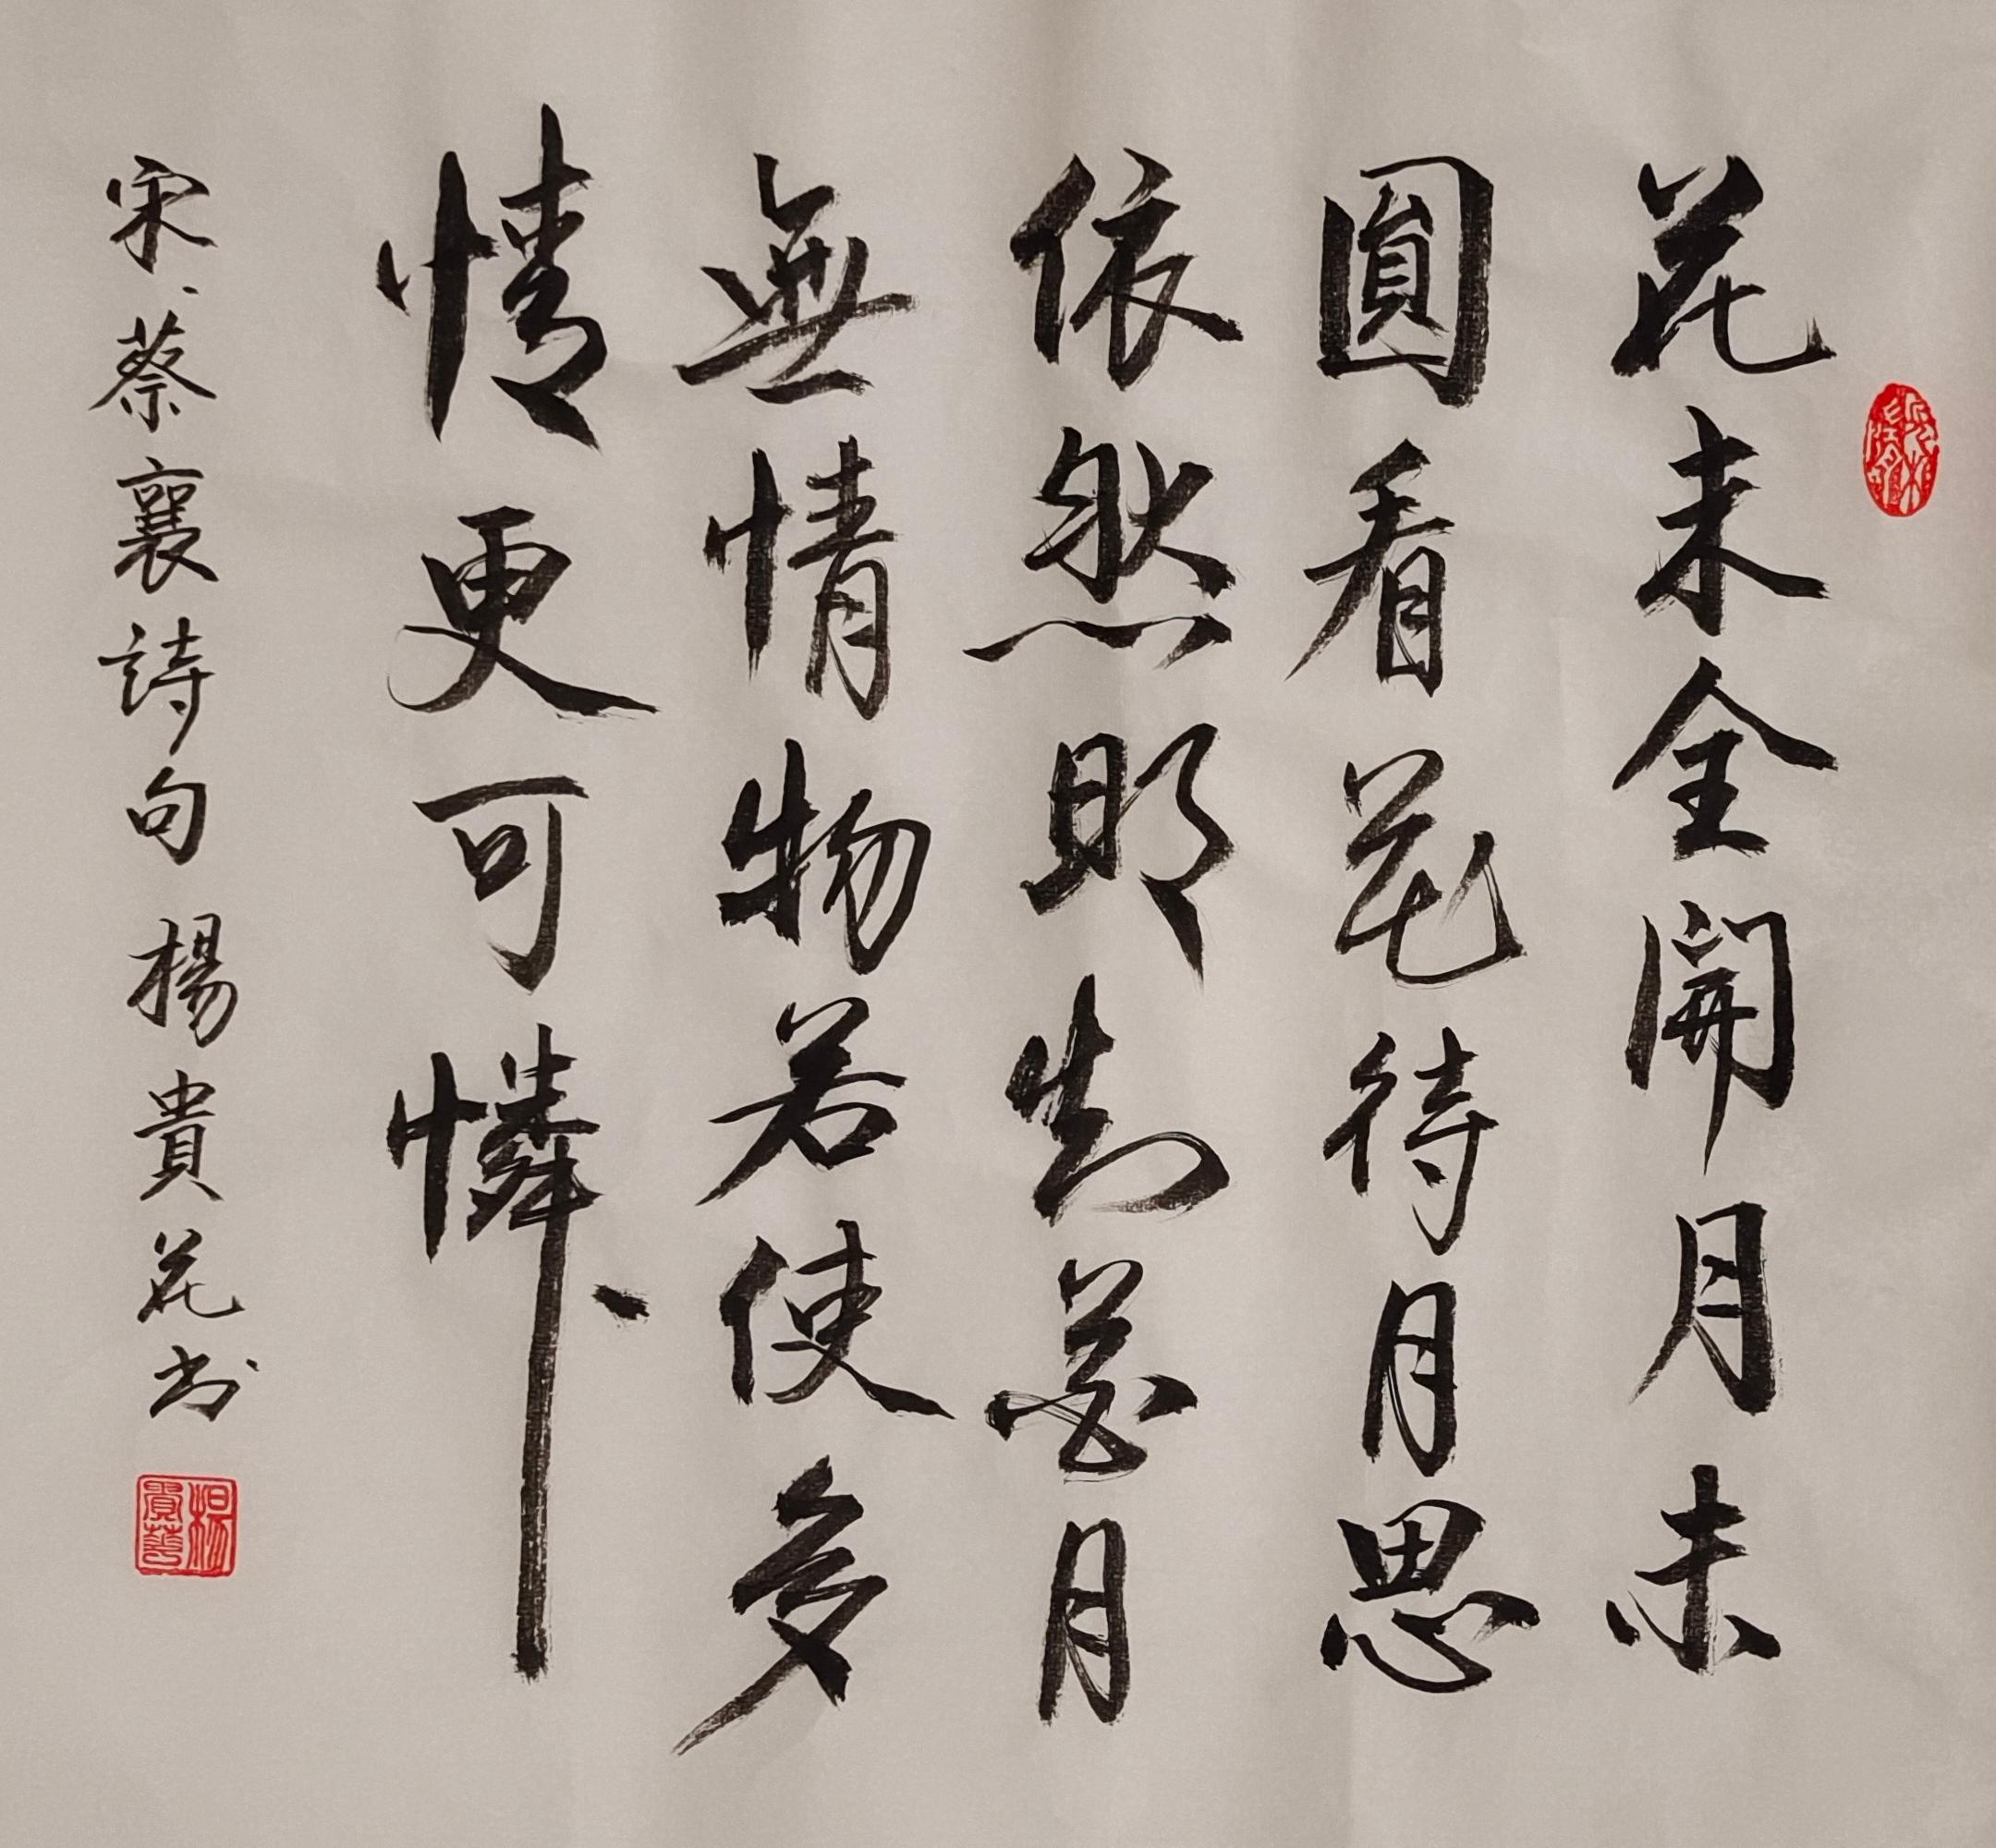 花未全開月未
圓看花待月思
依然明知花月
無情物若使多
情更可憐
宋蔡襄詩句楊貴花书
楊貴花